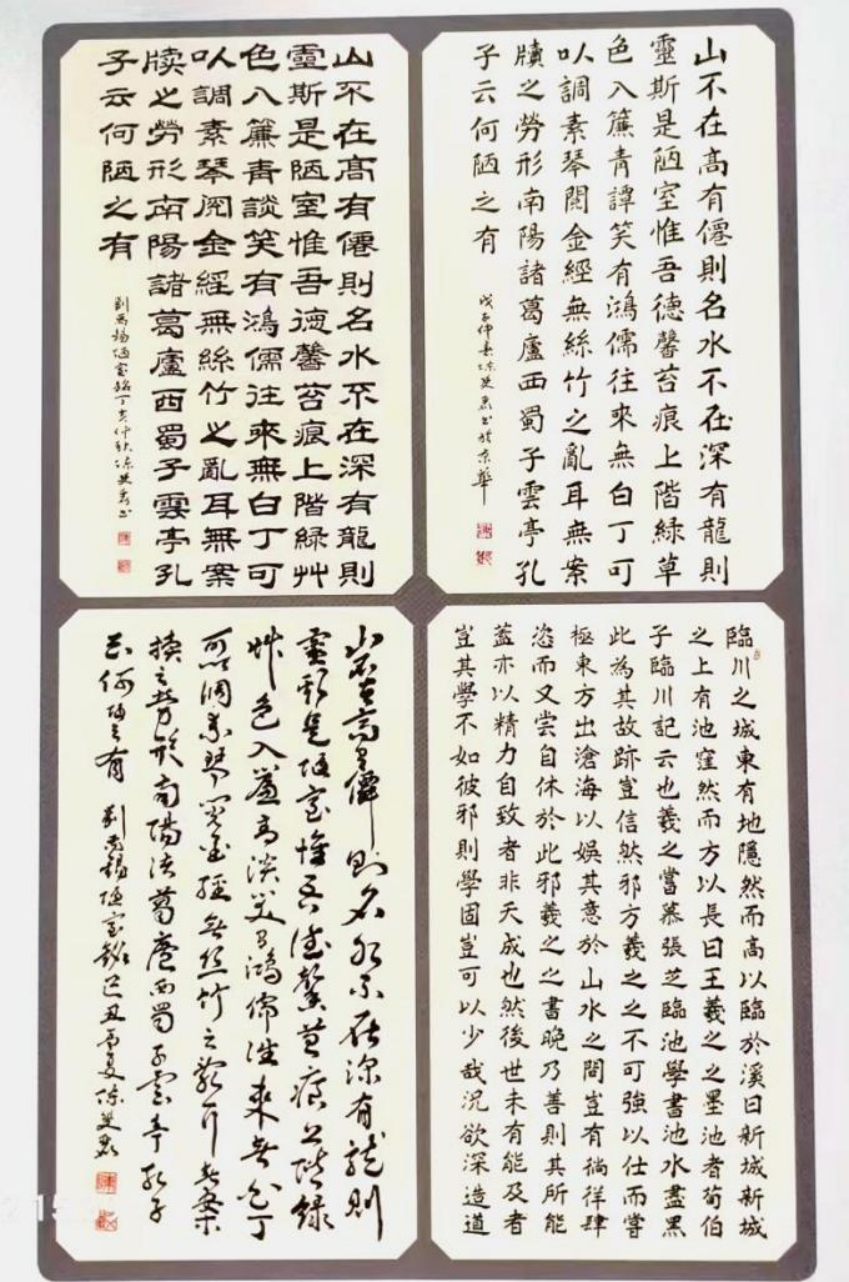 山不在高有僊則名水不在深有龍則
靈斯是陋室惟吾德馨苔痕上階緑草
色入簾青譚笑有鴻儒往來無白丁可
以調素琴閱金經無絲竹之亂耳無案
牘之勞形南陽諸葛廬西蜀子雲亭孔
子云何陋之有
戊子仲春書於京華
山不在高有僊則名水不在深有龍則
靈斯是陋室惟吾德馨苔痕上階緑艸
色入簾青談笑有鴻儒往來無白丁可
以調素琴閱金經無絲竹之亂耳無案
牘之勞形南陽諸葛廬西蜀子雲亭孔
子云何陋之有
劉禹錫陋室銘丁亥仲秋
臨川之城東有地隱然而高以臨於溪曰新城新城
之上有池窪然而方以長曰王羲之之墨池者荀伯
子臨川記云也羲之嘗慕張芝臨池學書池水盡黑
此為其故跡豈信然邪方羲之之不可強以仕而嘗
極東方出滄海以娛其意於山水之間豈有徜徉肆
恣而又嘗自休於此邪羲之之書晚乃善則其所能
蓋亦以精力自致者非天成也然後世未有能及者
豈其學不如彼邪則學固豈可以少哉況欲深造道
山不在高有僊則名水不在深有龍則
靈斯是陋室惟吾德馨苔痕上階緑
艸色入簾青談笑有鴻儒往來無白丁
可以調素琴閱金經無絲竹之亂耳無案
牘之勞形南陽諸葛廬西蜀子雲亭孔子
云何陋之有 劉禹錫陋室銘己丑孟夏